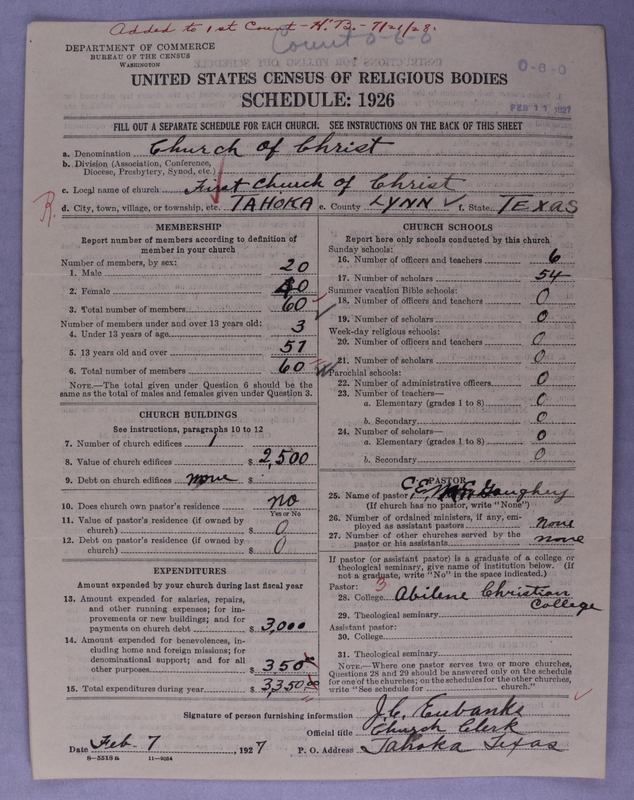 Added to 1st Count - H.B. - 7/21/28.
Count 0-6-0
DEPARTMENT OF COMMERCE
BUREAU OF THE CENSUS
WASHINGTON
0-6-0
UNITED STATES CENSUS OF RELIGIOUS BODIES
SCHEDULE: 1926
FEB 11 1927
FILL OUT A SEPARATE SCHEDULE FOR EACH CHURCH. SEE INSTRUCTIONS ON THE BACK OF THIS SHEET
a. Denomination Church of Christ
b. Division (Association, Conference, Diocese, Presbytery, Synod, etc.)
c. Local name of church First Church of Christ
R. d. City, town, village, or township, etc. TAHOKA e. County LYNN f. State TEXAS
MEMBERSHIP
Report number of members according to definition of
member in your church
Number of members, by sex:
1. Male 20
2. Female 40
3. Total number of members 60
Number of members under and over 13 years old:
4. Under 13 years of age 3
5. 13 years old and over 57
6. Total number of members 60
NOTE.—The total given under Question 6 should be
same as the total of males and females given under Question 3.
CHURCH BUILDINGS
See instructions, paragraphs 10 to 12
7. Number of church edifices 1
8. Value of church edifices $ 2,500
9. Debt on church edifices none $
10. Does church own pastor's residence no
Yes or No
11. Value of pastor's residence (if owned by
church) $ 0
12. Debt on pastor's residence (if owned by
church) $ 0
EXPENDITURES
Amount expended by your church during last fiscal year
13. Amount expended for salaries, repairs,
and other running expenses; for im-
provements or new buildings; and for
payments on church debt $ 3,000
14. Amount expended for benevolences, in-
cluding home and foreign missions; for
denominational support; and for all
other purposes $ 350 00
15. Total expenditures during year $ 3,350.00
CHURCH SCHOOLS
Report here only schools conducted by this church
Sunday schools:
16. Number of officers and teachers 6
17. Number of scholars 54
Summer vacation Bible schools:
18. Number of officers and teachers 0
19. Number of scholars 0
Week-day religious schools:
20. Number of officers and teachers 0
21. Number of scholars 0
Parochial schools:
22. Number of administrative officers 0
23. Number of teachers—
a. Elementary (grades 1 to 8) 0
b. Secondary 0
24. Number of scholars—
a. Elementary (grades 1 to 8) 0
b. Secondary 0
PASTOR
25. Name of pastor
(If church has no pastor, write "None")
26. Number of ordained ministers, if any, em-
ployed as assistant pastors none
27. Number of other churches served by the
pastor or his assistants none
If pastor (or assistant pastor) is a graduate of a college or
theological seminary, give name of institution below. (If
not a graduate, write "No" in the space indicated.)
Pastor: 3
28. College Abilene Christian College
29. Theological seminary
Assistant pastor:
30. College
31. Theological seminary
NOTE.—Where one pastor serves two or more churches,
Questions 28 and 29 should be answered only on the schedule
for one of the churches; on the schedules for the other churches,
write "See schedule for church."
Signature of person furnishing information J.C. Eubanks
Official title Church Clerk
Date Feb. 7, 1927 P. O. Address Tahoka Texas
8-5518a 11-9054